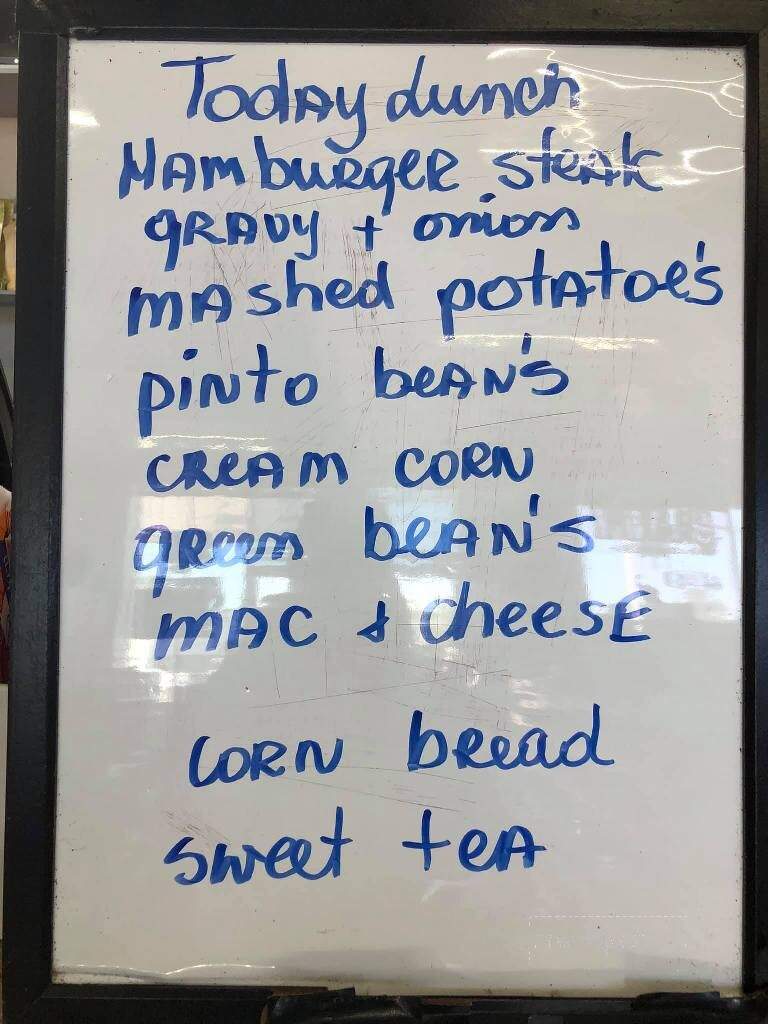 Today Lunch
HAmburgeR steak
gRAvy + onions
mAshed potAtoe's
piNto beAN's
cReAm coRN
green beAN's
mAC & cheesE
coRN bread
sweet teA